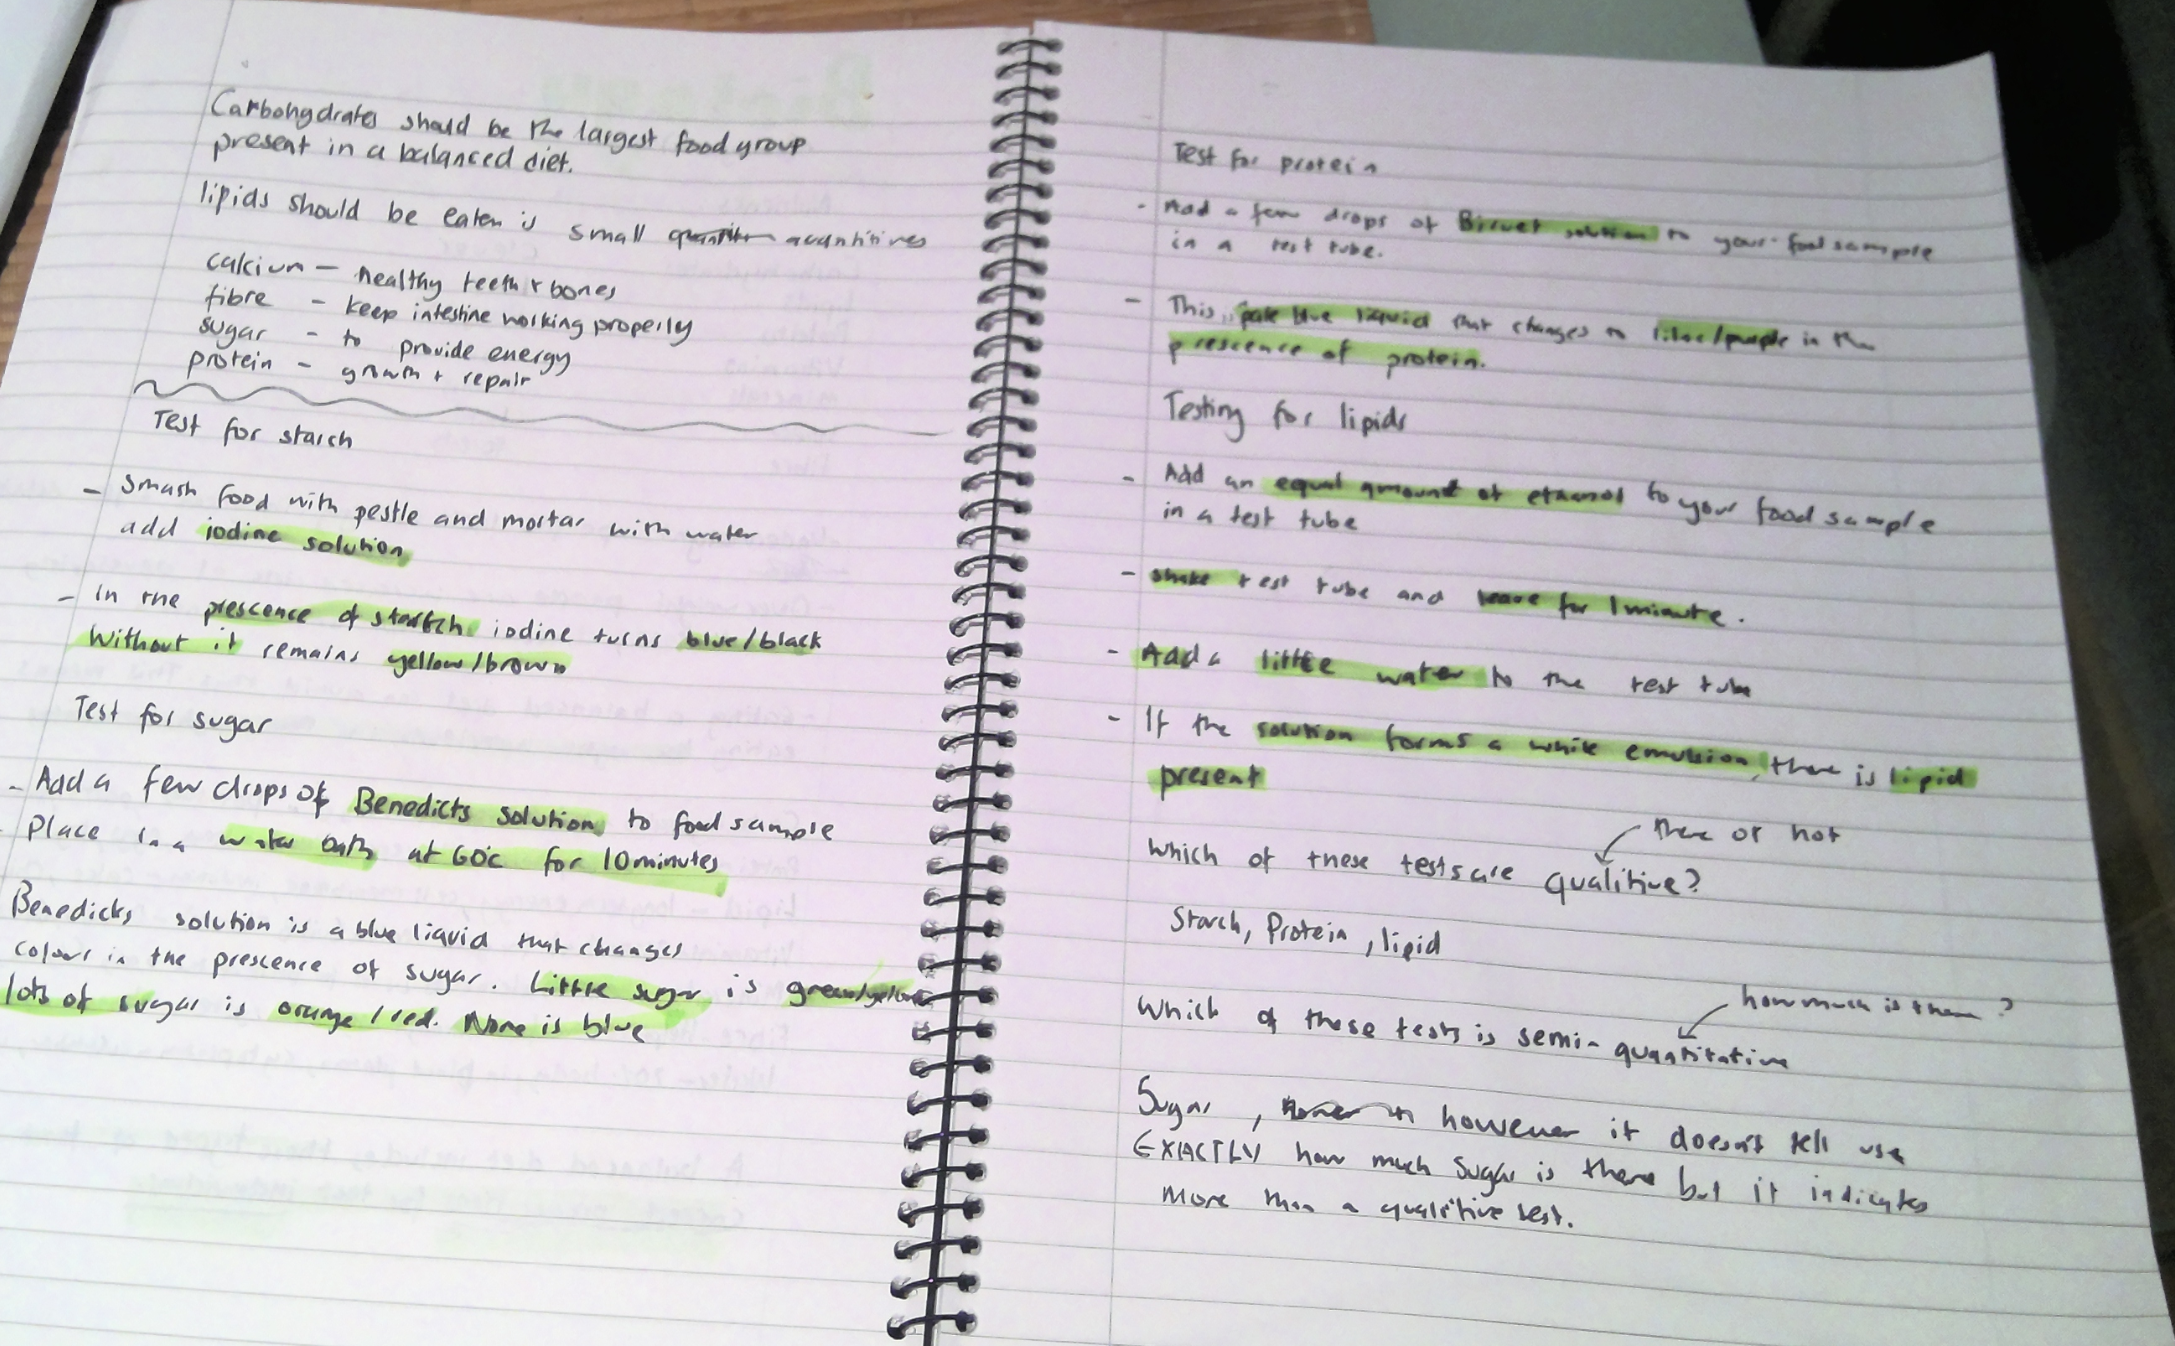 Carbohydrates should be the largest food group
present in a balanced diet.
lipids should be eaten is small quantities
calcium - healthy teeth + bones
fibre - keep intestine working properly
sugar - to provide energy
protein - growth + repair
Test for starch
- Smash food with pestle and mortar with water
add iodine solution
- In the prescence of starch iodine turns blue/black
Without it remains yellow/brown
Test for sugar
- Add a few drops of Benedicts solution to food sample
- Place in a water bath at 60c for 10 minutes
Benedicts solution is a blue liquid that changes
colour in the prescence of sugar. Little sugar is green/yellow
lots of sugar is orange/red. None is blue
Test for protein
- Add a few drops of Biruet solution to your food sample
in a test tube.
- This is pale blue liquid that changes to lilac/purple in the
prescence of protein.
Testing for lipids
- Add an equal amount of ethanol to your food sample
in a test tube
- shake test tube and leave for 1 minute.
- Add a little water to the test tube
- If the solution forms a white emulsion, there is lipid
present
there or not
Which of these tests are qualitive?
Starch, Protein, lipid
how much is there?
Which of these tests is semi-quantitative
Sugar, however it doesn't tell use
EXACTLY how much sugar is there but it indicates
more than a qualitive test.